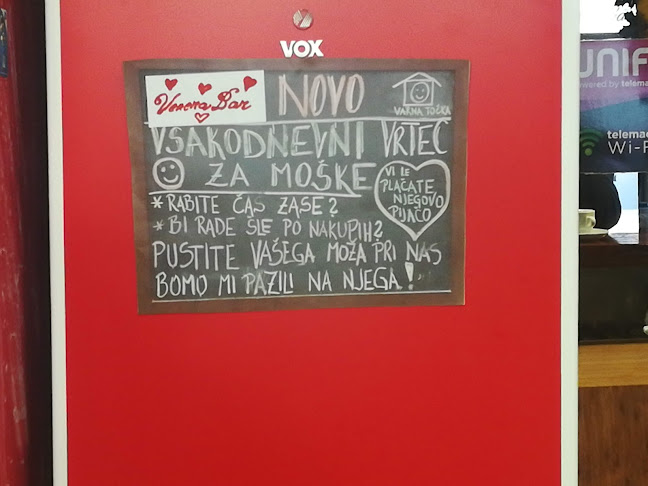 VOX
Verona Bar
NOVO
VARNA TOČKA
VSAKODNEVNI VRTEC
ZA MOŠKE
VI LE
PLAČATE
NJEGOVO
PIJAČO
* RABITE ČAS ZASE?
* BI RADE ŠLE PO NAKUPIH?
PUSTITE VAŠEGA MOŽA PRI NAS
BOMO MI PAZILI NA NJEGA!
UNIF
powered by telema
telemac
Wi-F